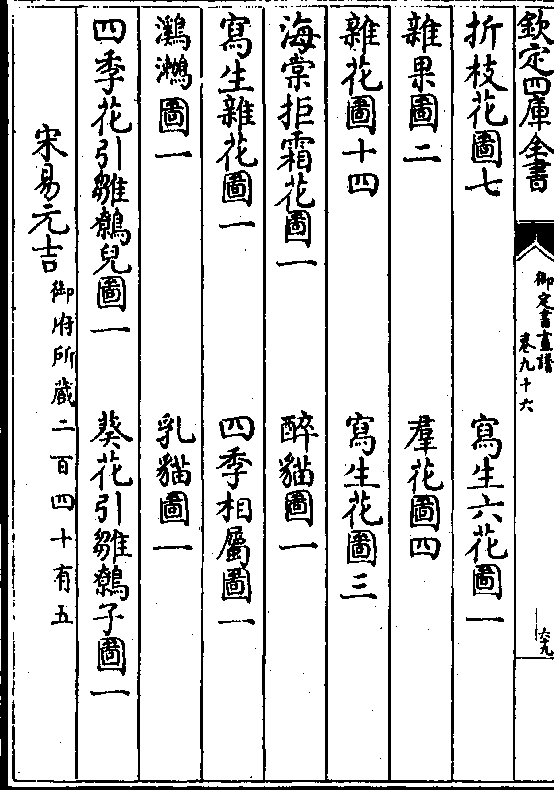 欽定四庫全書
御定書畫譜
卷九十六
六九
折枝花圖七　寫生六花圖一
雜果圖二　羣花圖四
雜花圖十四　寫生花圖三
海棠拒霜花圖一　醉貓圖一
寫生雜花圖一　四季相屬圖一
鸂鷘圖一　乳貓圖一
四季花引雛鶵兒圖一　葵花引雛鶵子圖一
宋易元吉御府所藏二百四十有五